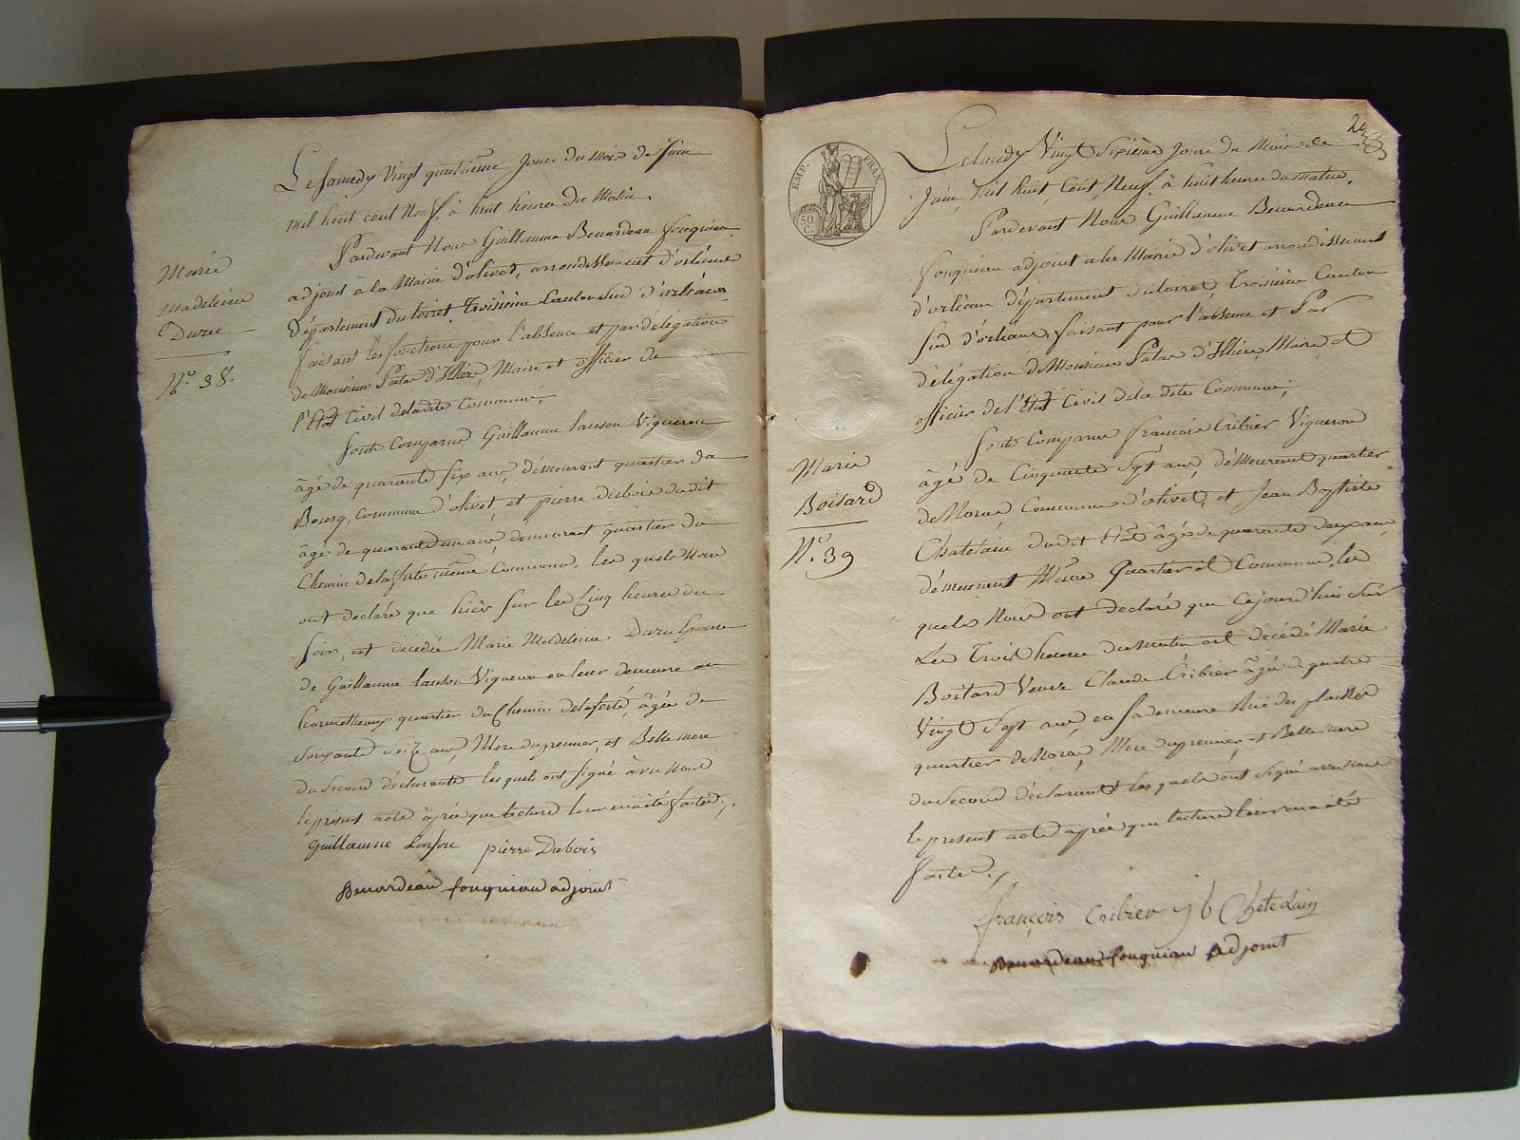 Le Samedy Vingt quatrième Jour du Mois de Juin
mil huit cent Neuf à huit heures du Matin
Pardevant Nous Guillaume Beuardeau fouqueau
adjoint à la Mairie d'olivet, arrondissement d'orléans
département du loiret, troisième Canton Sud d'orléans
faisant les fonctions pour l'absence et par délégation
de Monsieur Pater d'Illiers, Maire et officier de
l'Etat Civil de la dite Commune,
Sont Comparus Guillaume Vigneron
âgé de quarante six ans, démeurant quartier du
Bourg, Commune d'olivet, et pierre dubois du dit
âgé de quarante un ans, demeurant quartier du
Chemin de la ferté même Commune, les quels Nous
ont déclaré que hièr sur les Cinq heures du
soir, est décédée Marie Madeleine Duru
de Guillaume Vigneron en leur demeure au
quartier du Chemin de la ferté, âgée de
Soixante Seize ans, Mère du premier, et Belle mere
du Second déclarants lesquels ont signé avec Nous
le présent acte après que lecture leur en à été faite
Guillaume pierre Dubois
Beuardeau fouqueau adjoint
Marie
Madeleine
Duru
N.° 38.
EMP. FRAN.
50
C.
Le Lundy Vingt Sixième Jour du Mois de
Juin, Mil huit Cent, Neuf à huit heures du matin,
Pardevant Nous Guillaume Beuardeau
fouqueau adjoint à la Mairie d'olivet arrondissement
d'orléans département du loiret, troisième Canton
Sud d'orléans faisant pour l'absence et Par
délégation de Monsieur Pater d'Illiers Maire et
officier de l'Etat Civil de la dite Commune,
Sont Comparus francois Cribier Vigneron
âgé de Cinquante Sept ans, démeurant quartier
de Commune d'olivet, et Jean Baptiste
Chatelain du dit Etat âgé de quarante deux ans
démeurant Même Quartier et Commune, les
quels Nous ont déclaré que Cejourd'hui sur
Les Trois heures du Matin est décédé Marie
Boitard Veuve Claude Cribier âgée de quatre
Vingt Sept ans, en sa demeure Rue des
quartier de Mère du premier et Belle mere
du Second déclarants les quels ont signé avec nous
le présent acte après que lecture leur en à été
faite.
françois Cribier j b Chatelain
Beuardeau fouqueau adjoint
Marie
Boitard
N.° 39